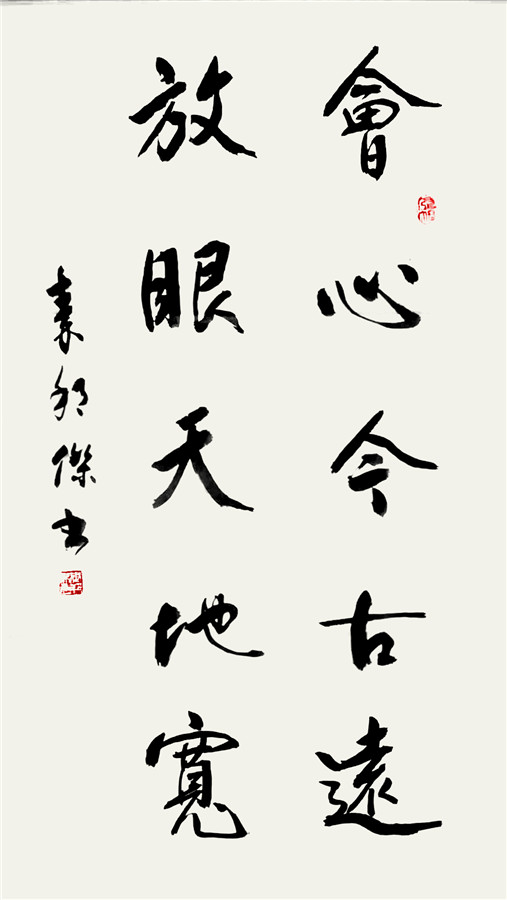 會心今古遠
放眼天地寬
袁邦傑書